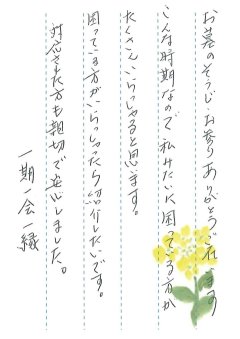 お墓のそうじ・お参りありがとうございます
こんな時期なので私みたいに困っている方が
たくさんいらっしゃると思います。
困っている方がいらっしゃったら紹介したいです。
対応された方も親切で安心しました。
一期一会一縁